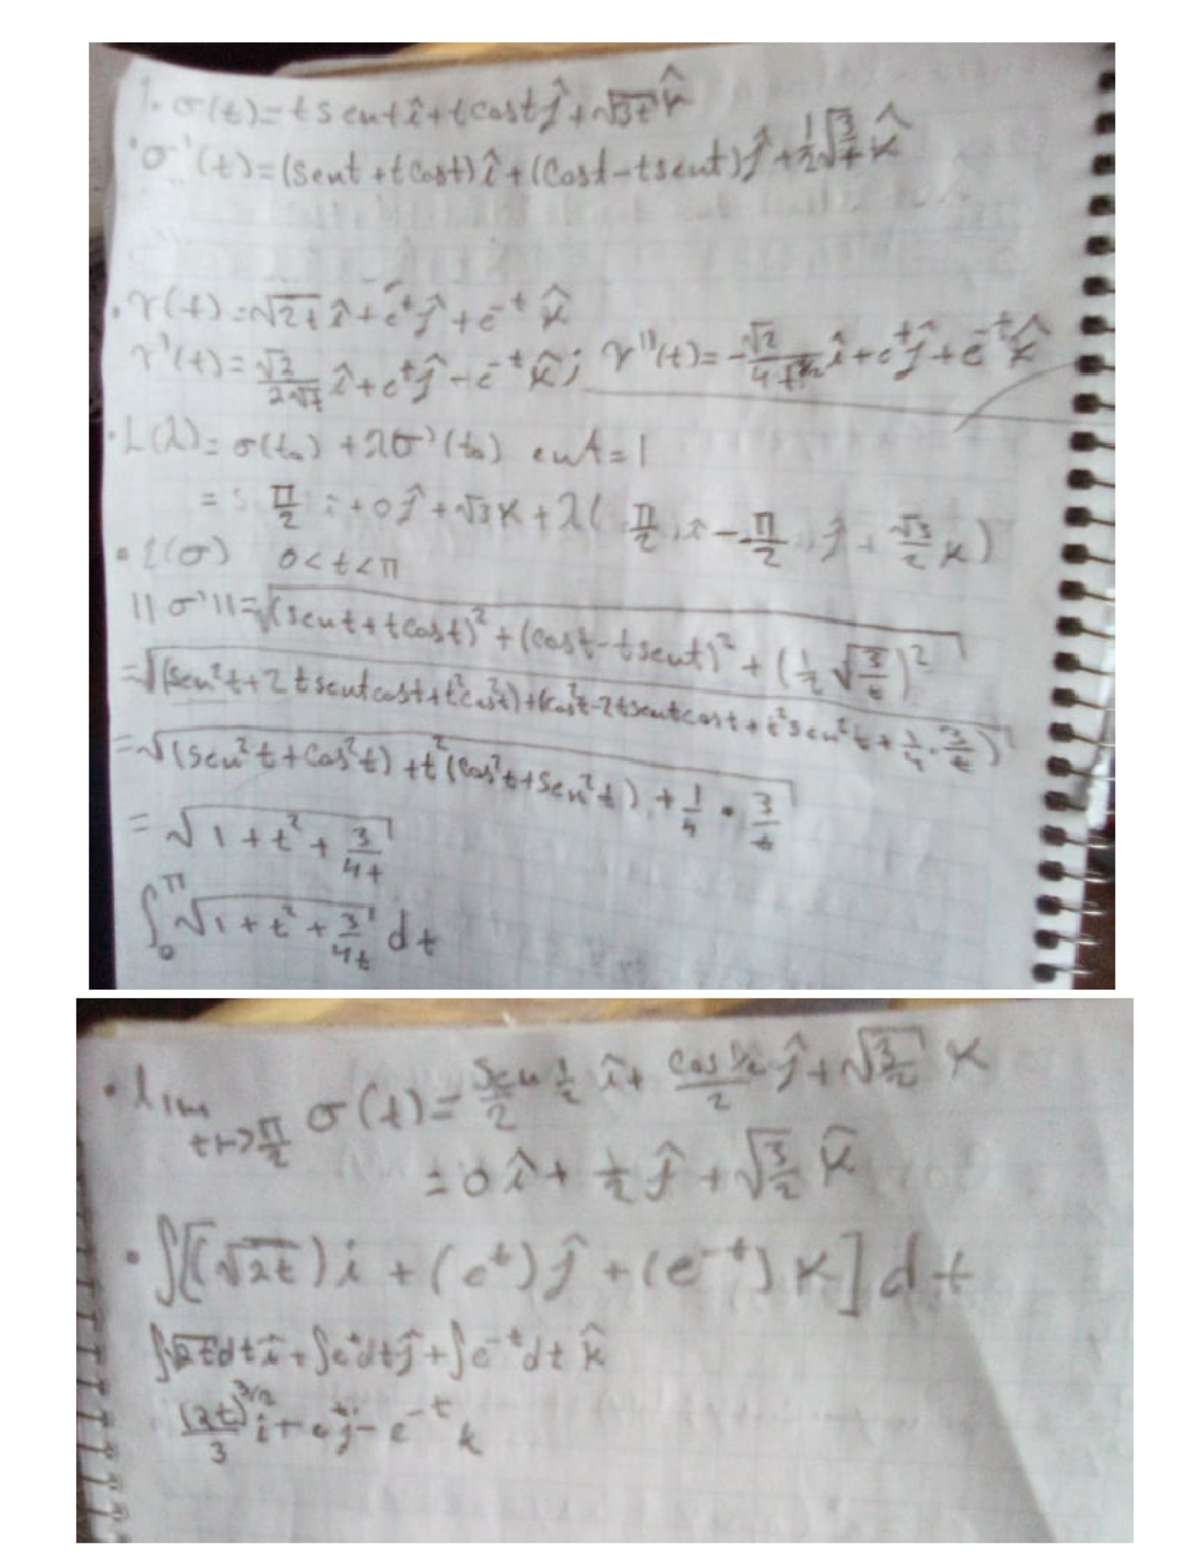 1. σ(t)=t sent î+t cost ĵ+√3t k̂
·σ'(t)=(sent+tcost)î+(cost-tsent)ĵ+½√(3/t) k̂
·r(t)=√2t î+e^t ĵ+e^-t k̂
r'(t)=√2/(2√t) î+e^t ĵ-e^-t k̂; r''(t)=-√2/(4t^3/2) î+e^t ĵ+e^-t k̂
·L(λ)=σ(t₀)+λσ'(t₀) en t=1
= π/2 i+0ĵ+√3k+λ(π/2 i-π/2 j+√3/2 k)
·l(σ) 0<t<π
||σ'||=√((sent+tcost)²+(cost-tsent)²+(½√(3/t))²)
=√((sen²t+2tsentcost+t²cos²t)+(cos²t-2tsentcost+t²sen²t+¼·3/t))
=√((sen²t+cos²t)+t²(cos²t+sen²t)+¼·3/t)
=√(1+t²+3/4t)
∫₀^π √(1+t²+3/4t) dt
·lim t→π/2 σ(t)=sen½/2 î+cos½/2 ĵ+√(3/2) k
=0î+½ĵ+√(3/2) k̂
·∫[(√2t)i+(e^t)ĵ+(e^-t)k]dt
∫√2tdt î+∫e^tdt ĵ+∫e^-tdt k̂
(2t)^3/2/3 i+e^t j-e^-t k